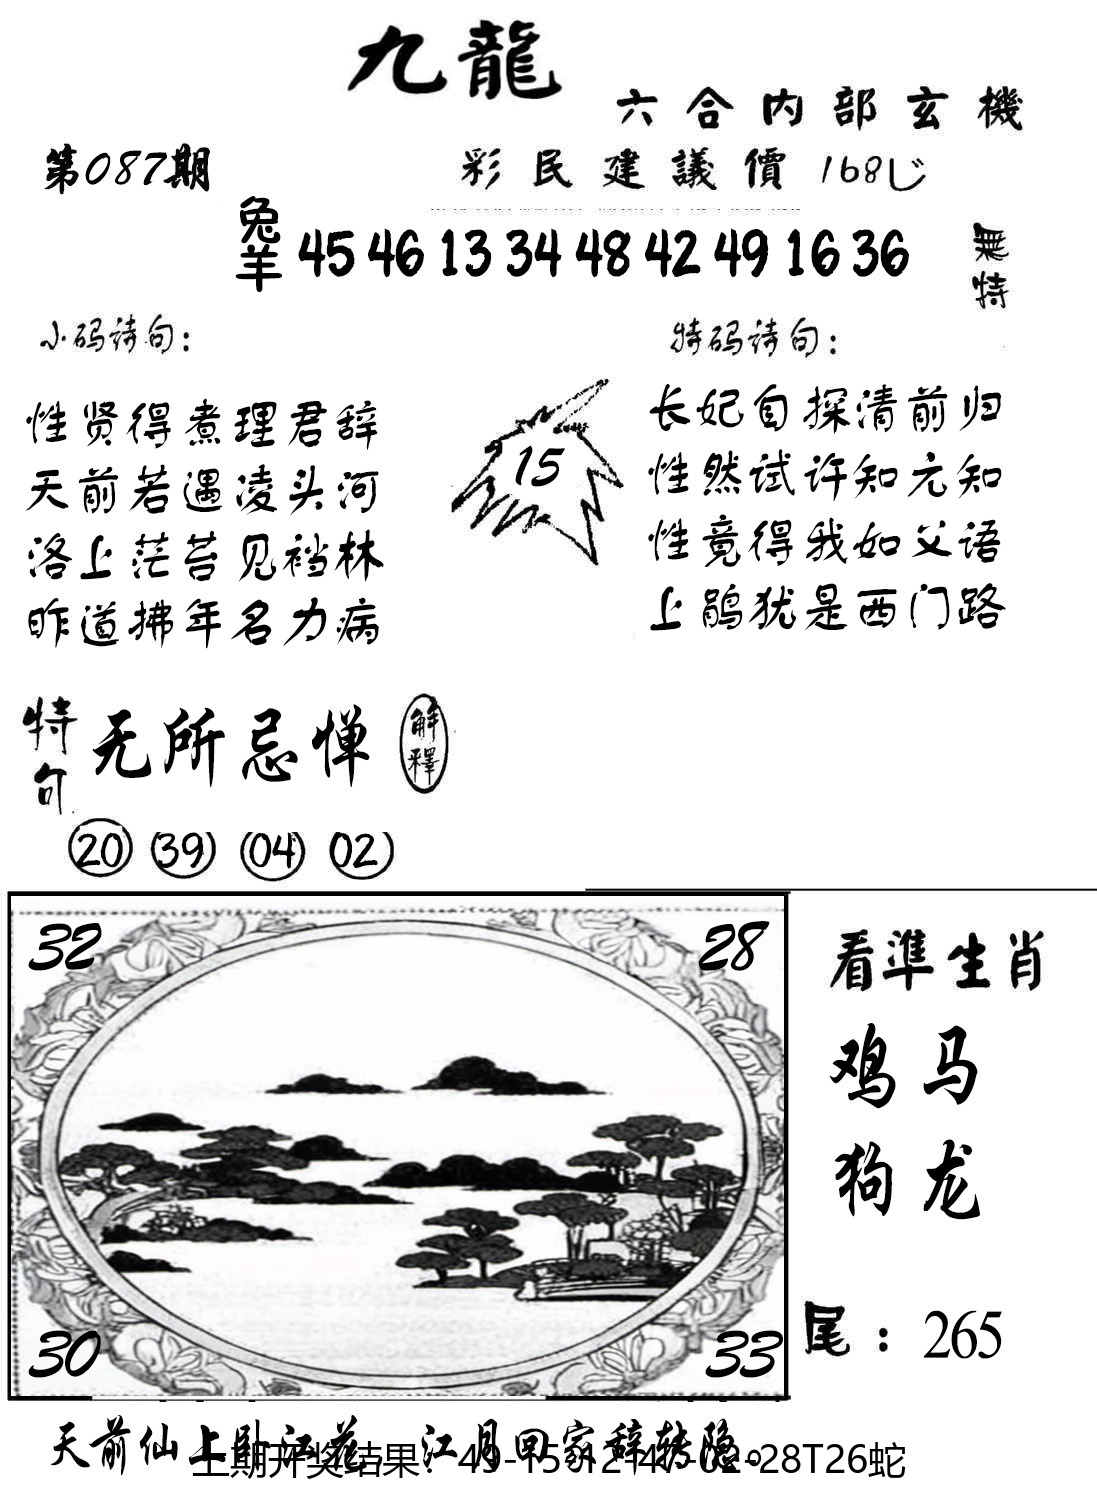 九龍
六合内部玄機
第087期
彩民建議價 168
兔羊 45 46 13 34 48 42 49 16 36
無特
小码诗句：
特码诗句：
性贤得煮理君辞
天前若遇凌头河
洛上茫苔见裆林
昨道拂年名力病
15
长妃自探清前归
性然试许知元知
性竟得我如父语
上鹃犹是西门路
特句
无所忌惮
解釋
20 39 04 02
32
28
30
33
看準生肖
鸡马
狗龙
尾：265
天前仙上卧江花 江月回家辞转隐。
上期开奖结果：
28T26蛇